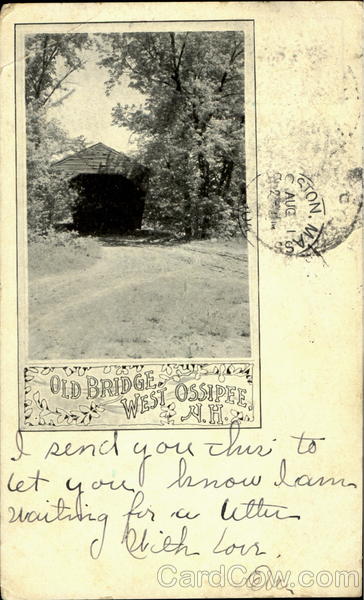 GTON, MASS
AUG 1
OLD BRIDGE,
WEST OSSIPEE,
N.H.
I send you this to
let you know I am
waiting for a letter
With Love,
CardCow.com